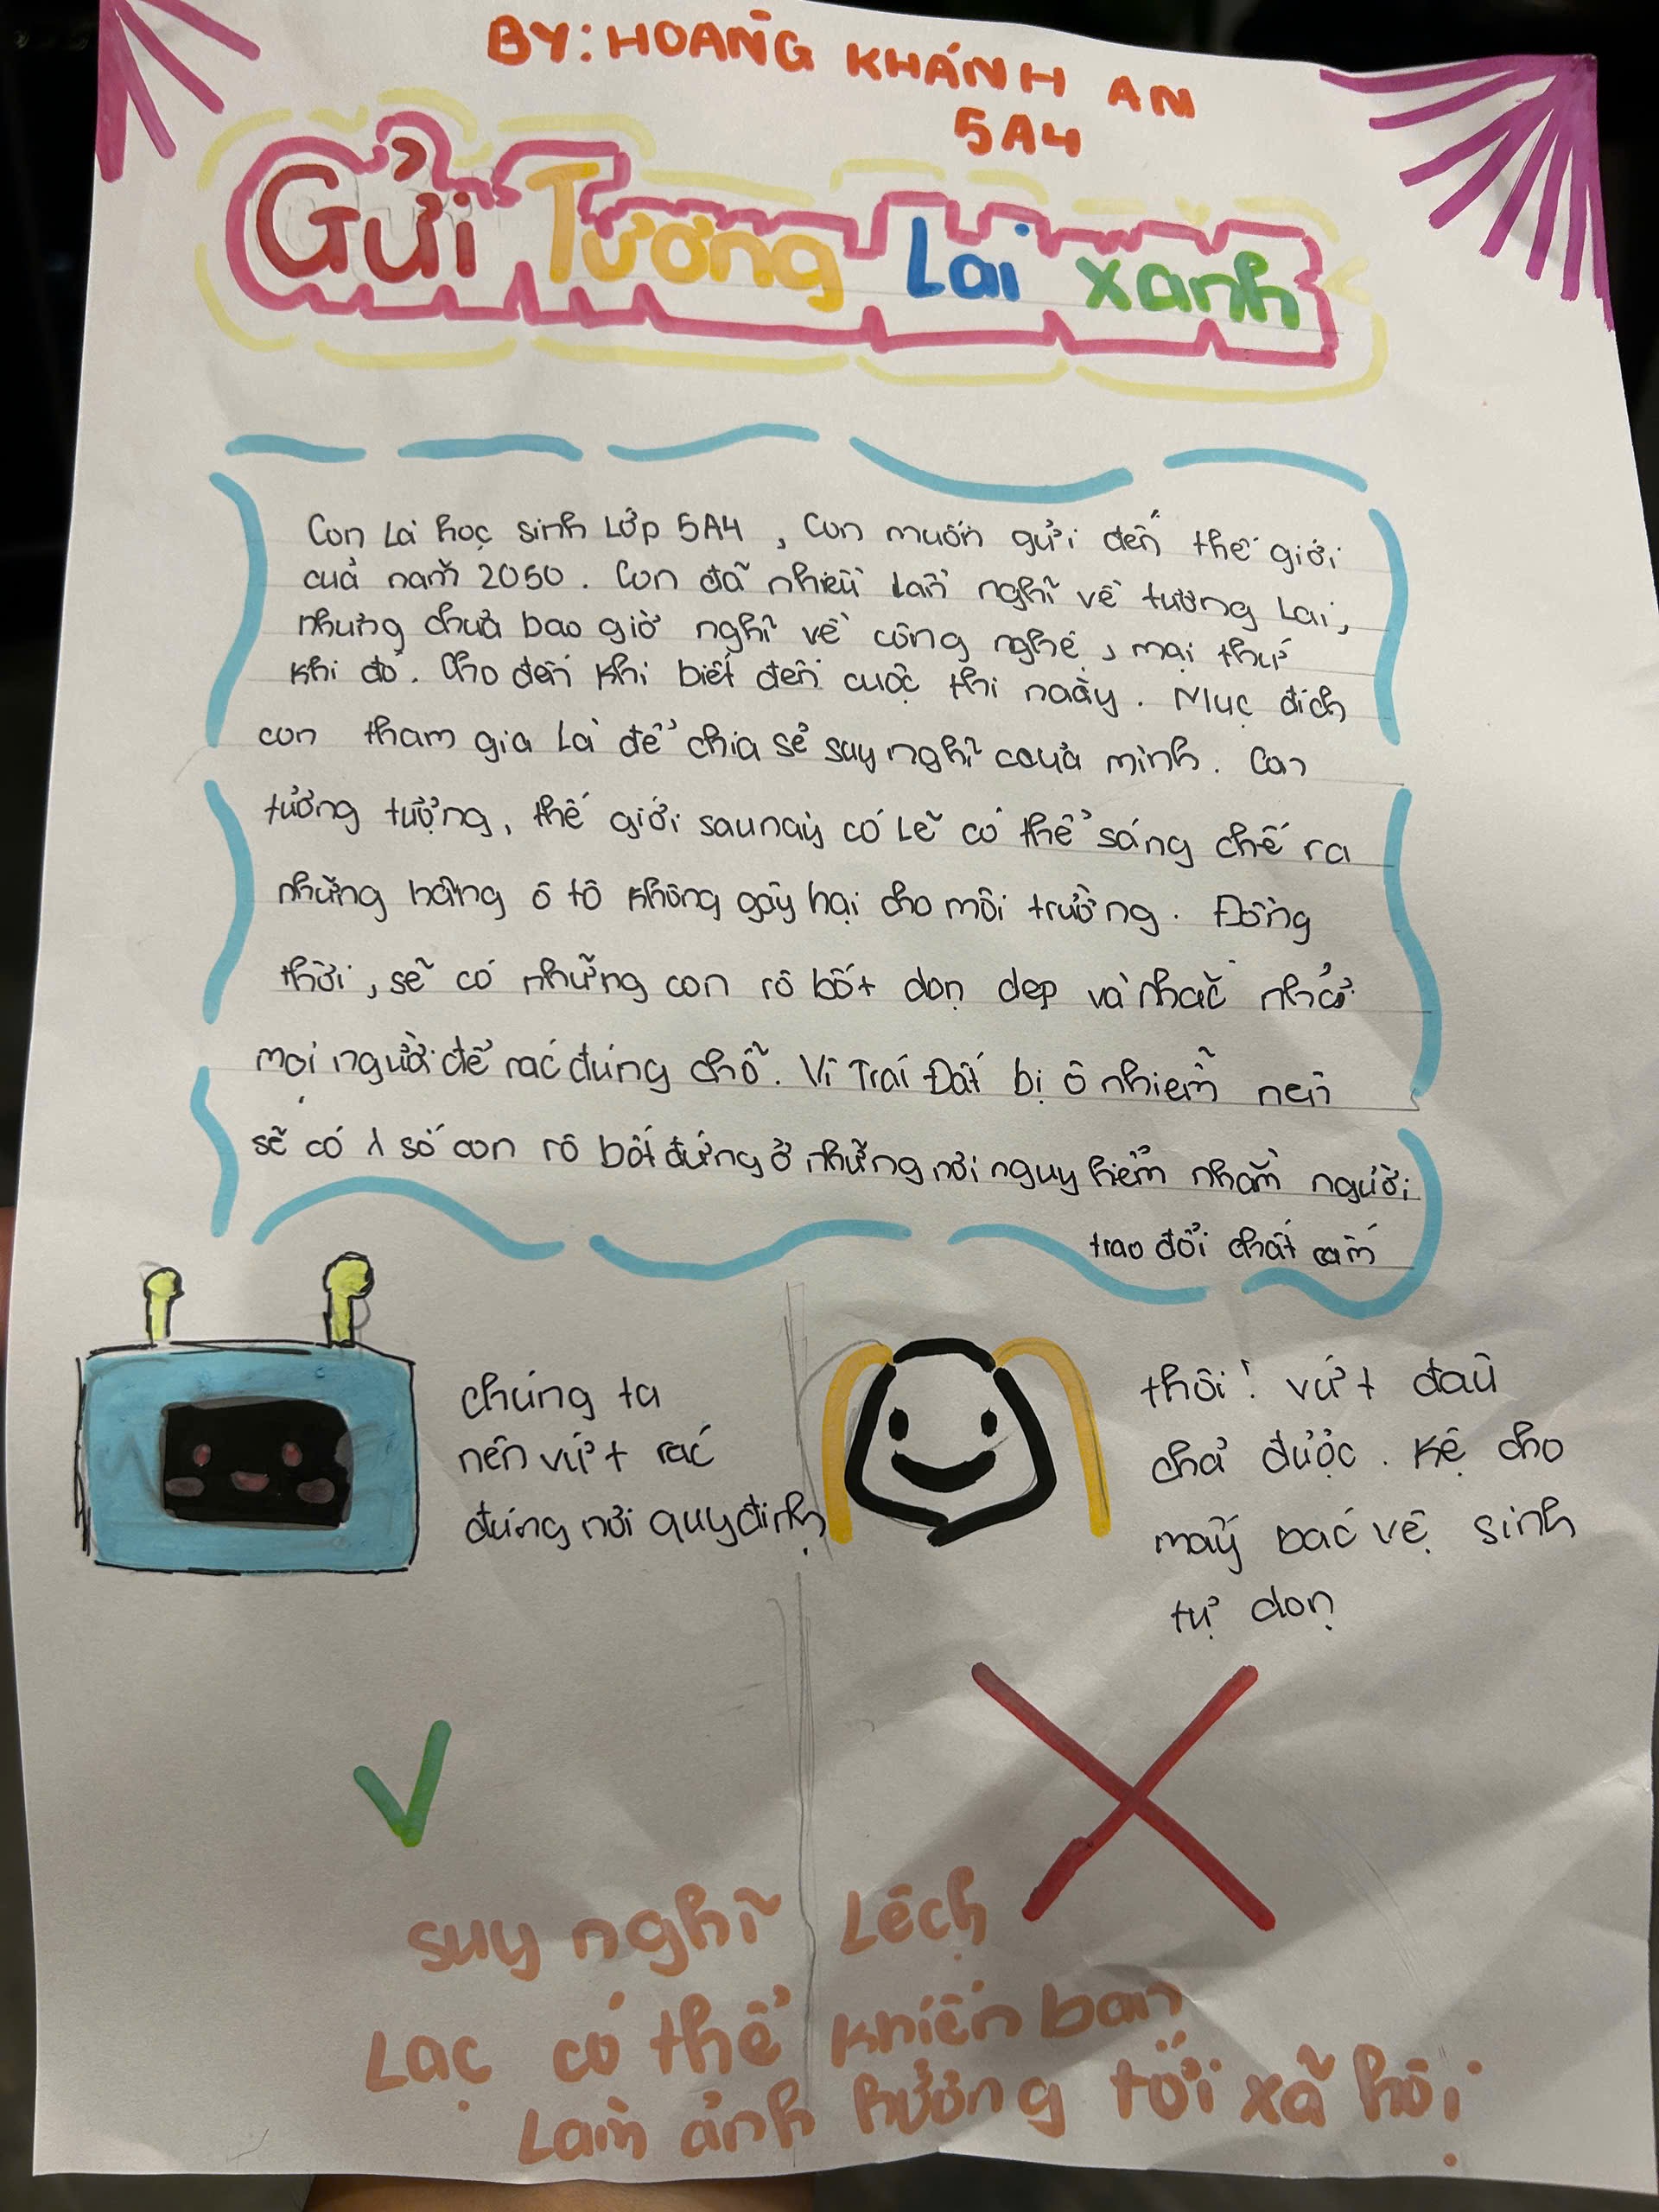 BY: HOÀNG KHÁNH AN
5A4
Gửi Tương Lai xanh
Con Là học sinh Lớp 5A4, Con muốn gửi đến thế giới
của năm 2050. Con đã nhiều lần nghĩ về tương Lai,
nhưng chưa bao giờ nghĩ về công nghệ, mọi thứ
khi đó. Cho đến khi biết đến cuộc thi này. Mục đích
con tham gia Là để chia sẻ suy nghĩ của mình. Con
tưởng tượng, thế giới sau này có Lẽ có thể sáng chế ra
những hãng ô tô không gây hại cho môi trường. Đồng
thời, sẽ có những con rô bốt dọn dẹp và nhắc nhở
mọi người để rác đúng chỗ. Vì Trái Đất bị ô nhiễm nên
sẽ có 1 số con rô bốt đứng ở những nơi nguy hiểm nhằm người
trao đổi chất cấm
chúng ta
nên vứt rác
đúng nơi quy định
thôi! vứt đâu
chả được. Kệ cho
mấy bác vệ sinh
tự dọn
suy nghĩ Lệch
Lạc có thể khiến bạn
Làm ảnh hưởng tới xã hội